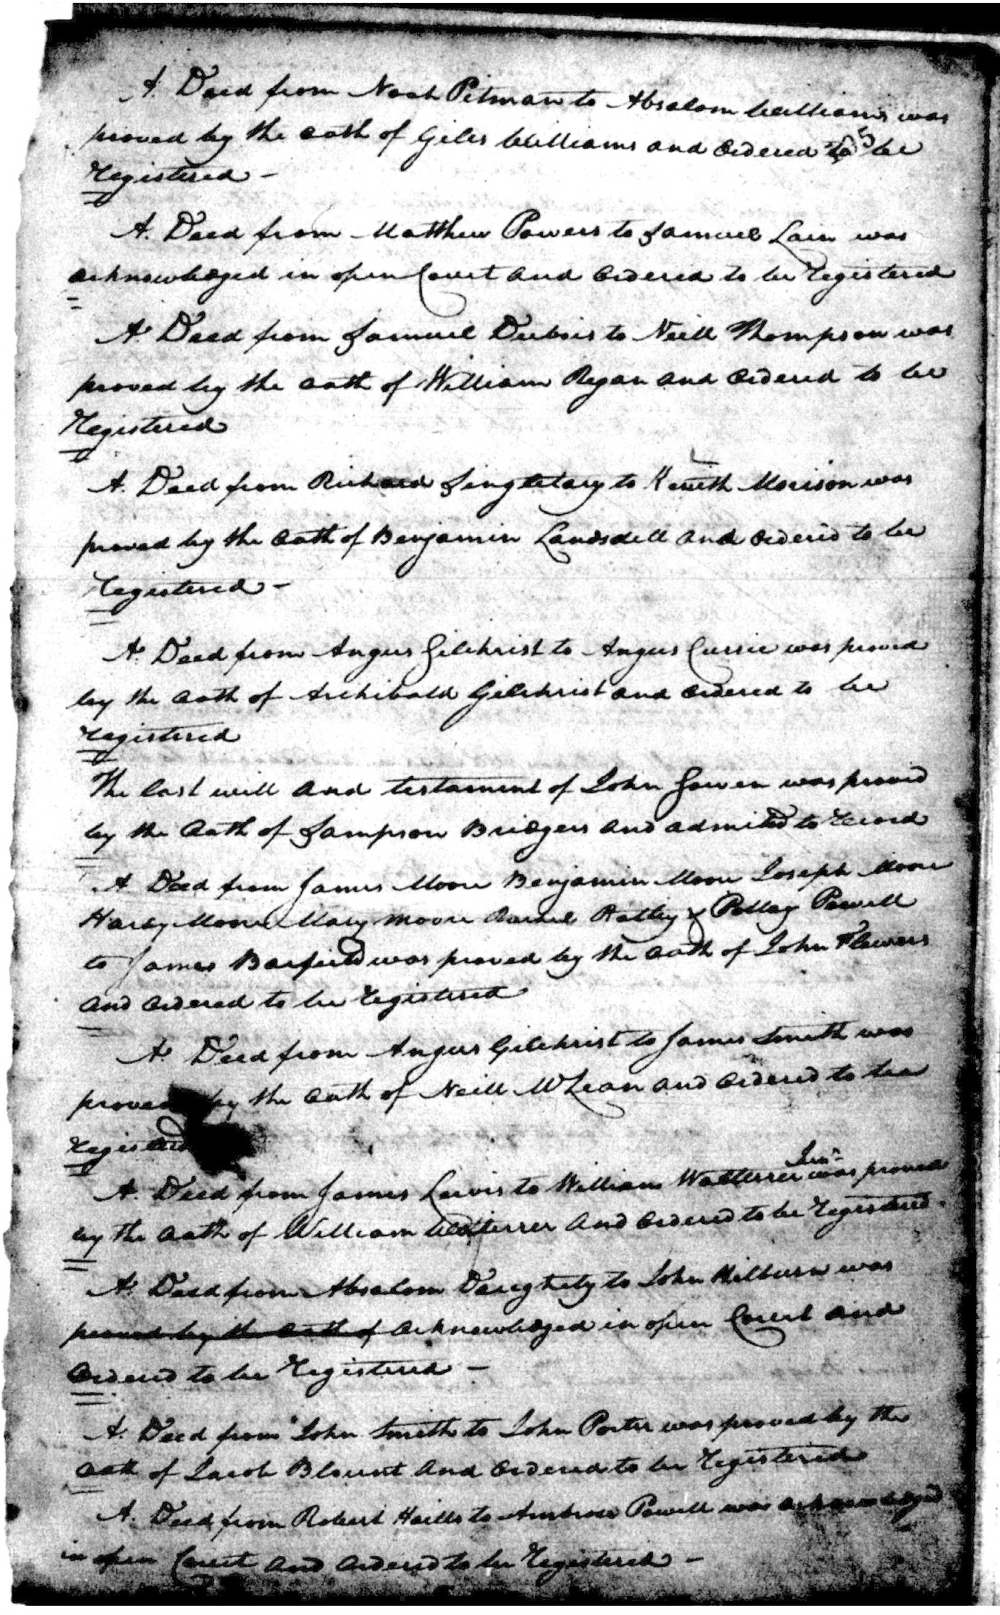 A Deed from Noah Pitman to Absalom Williams was
proved by the oath of Giles Williams and Ordered to be
Registered -
A. Deed from Matthew Powers to Samuel Lain was
acknowledged in open Court and Ordered to be Registered
A Deed from Samuel Dubois to Neill Thompson was
proved by the oath of William Regan and Ordered to be
Registered
A. Deed from Richard Singletary to Morison was
proved by the Oath of Benjamin Landsdell and Ordered to be
Registered -
A. Deed from Angus Gilchrist to Angus Currie was proved
by the Oath of Archibald Gilchrist and Ordered to be
Registered
The last will and testament of John Gowen was proved
by the Oath of Sampson Bridgers and admited to record
A Deed from James Moore Benjamin Moore Joseph Moore
Hardy Moore Mary Moore & Powell
to James Barfield was proved by the Oath of John Flowers
and Ordered to be Registered
A Deed from Angus Gilchrist to James Smith was
proved by the Oath of Neill McLean and Ordered to be
Registered
Junr
A. Deed from James Lewis to William Watterrer was proved
by the Oath of William Watterrer and Ordered to be Registered
A. Deed from Absalom Daughety to John Hilburn was
proved by the Oath of acknowledged in open Court and
Ordered to be Registered -
A. Deed from John Smith to John Porter was proved by the
Oath of Jacob Blount and Ordered to be Registered
A. Deed from Robert Haills to Ambrose Powell was acknowledged
in open Court and Ordered to be Registered -